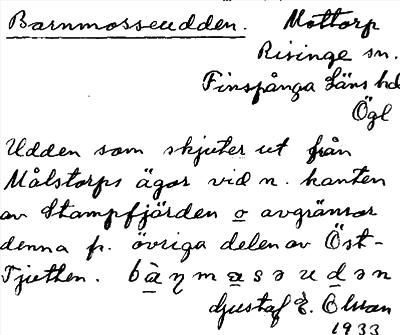 Barnmosseudden. Mottorp
Risinge sn.
Finspånga Läns hd
Ögl
Udden som skjuter ut från
Målstorps ägor vid n. kanten
av Stampfjärden o avgränsar
denna fr. övriga delen av Öst-
Tjutten. bàṇmasəudən
Gustaf E. Olsson
1933